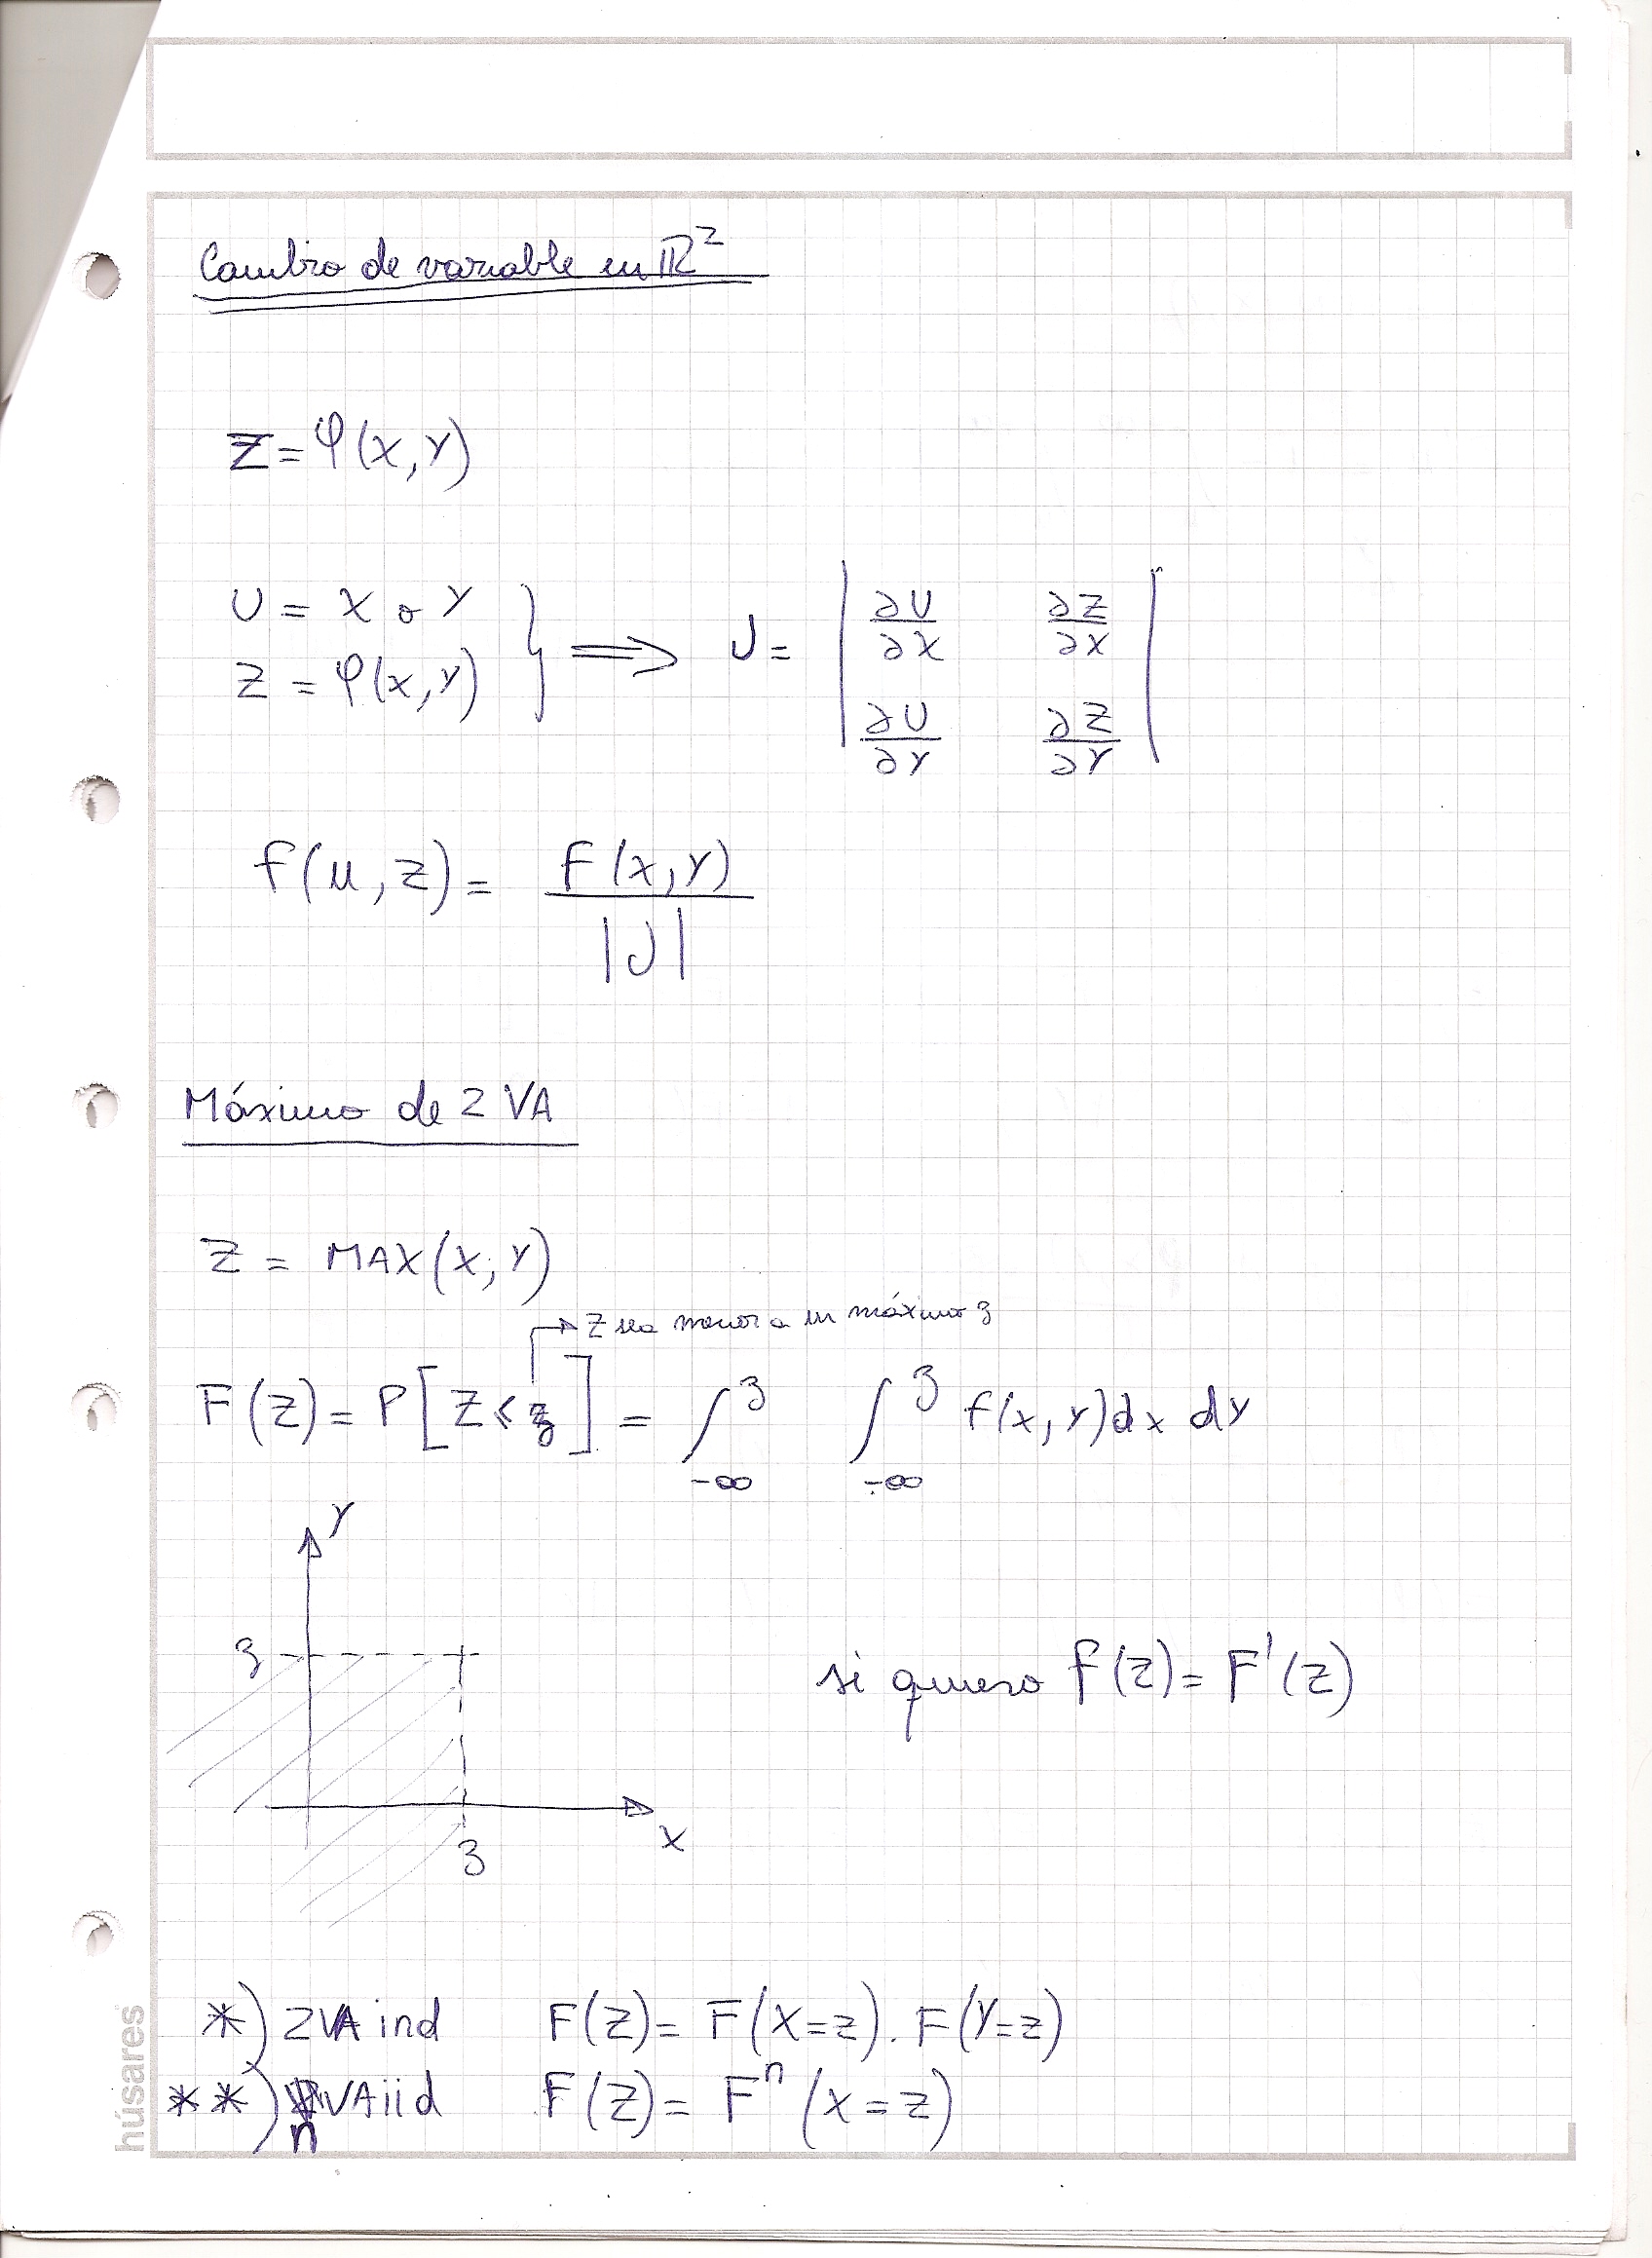 Cambio de variable en ℝ²
Z = φ(X,Y)
U = X o Y
Z = φ(X,Y) } ⟹ J = | ∂U/∂X ∂Z/∂X |
| ∂U/∂Y ∂Z/∂Y |
f(u,z) = f(x,y) / |J|
Máximo de 2 VA
Z = MAX(X,Y)
→ Z sea menor a un máximo z
F(Z) = P[Z ≤ z] = ∫_{-∞}^{z} ∫_{-∞}^{z} f(x,y) dx dy
Y
z
si quiero f(z) = F'(z)
X
z
*) 2VA ind F(Z) = F(X=z) . F(Y=z)
**) n VA iid F(Z) = Fⁿ(X=z)
húsares